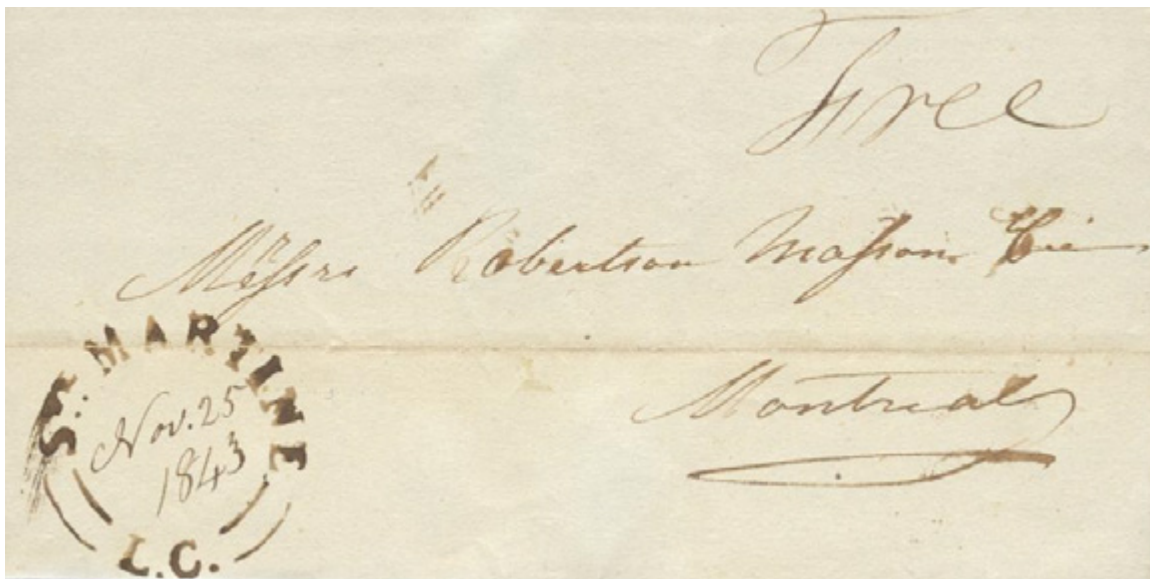 Free
Messrs Robertson Masson & Cie
Montreal
ST. MARTINE
Nov. 25
1843
L.C.